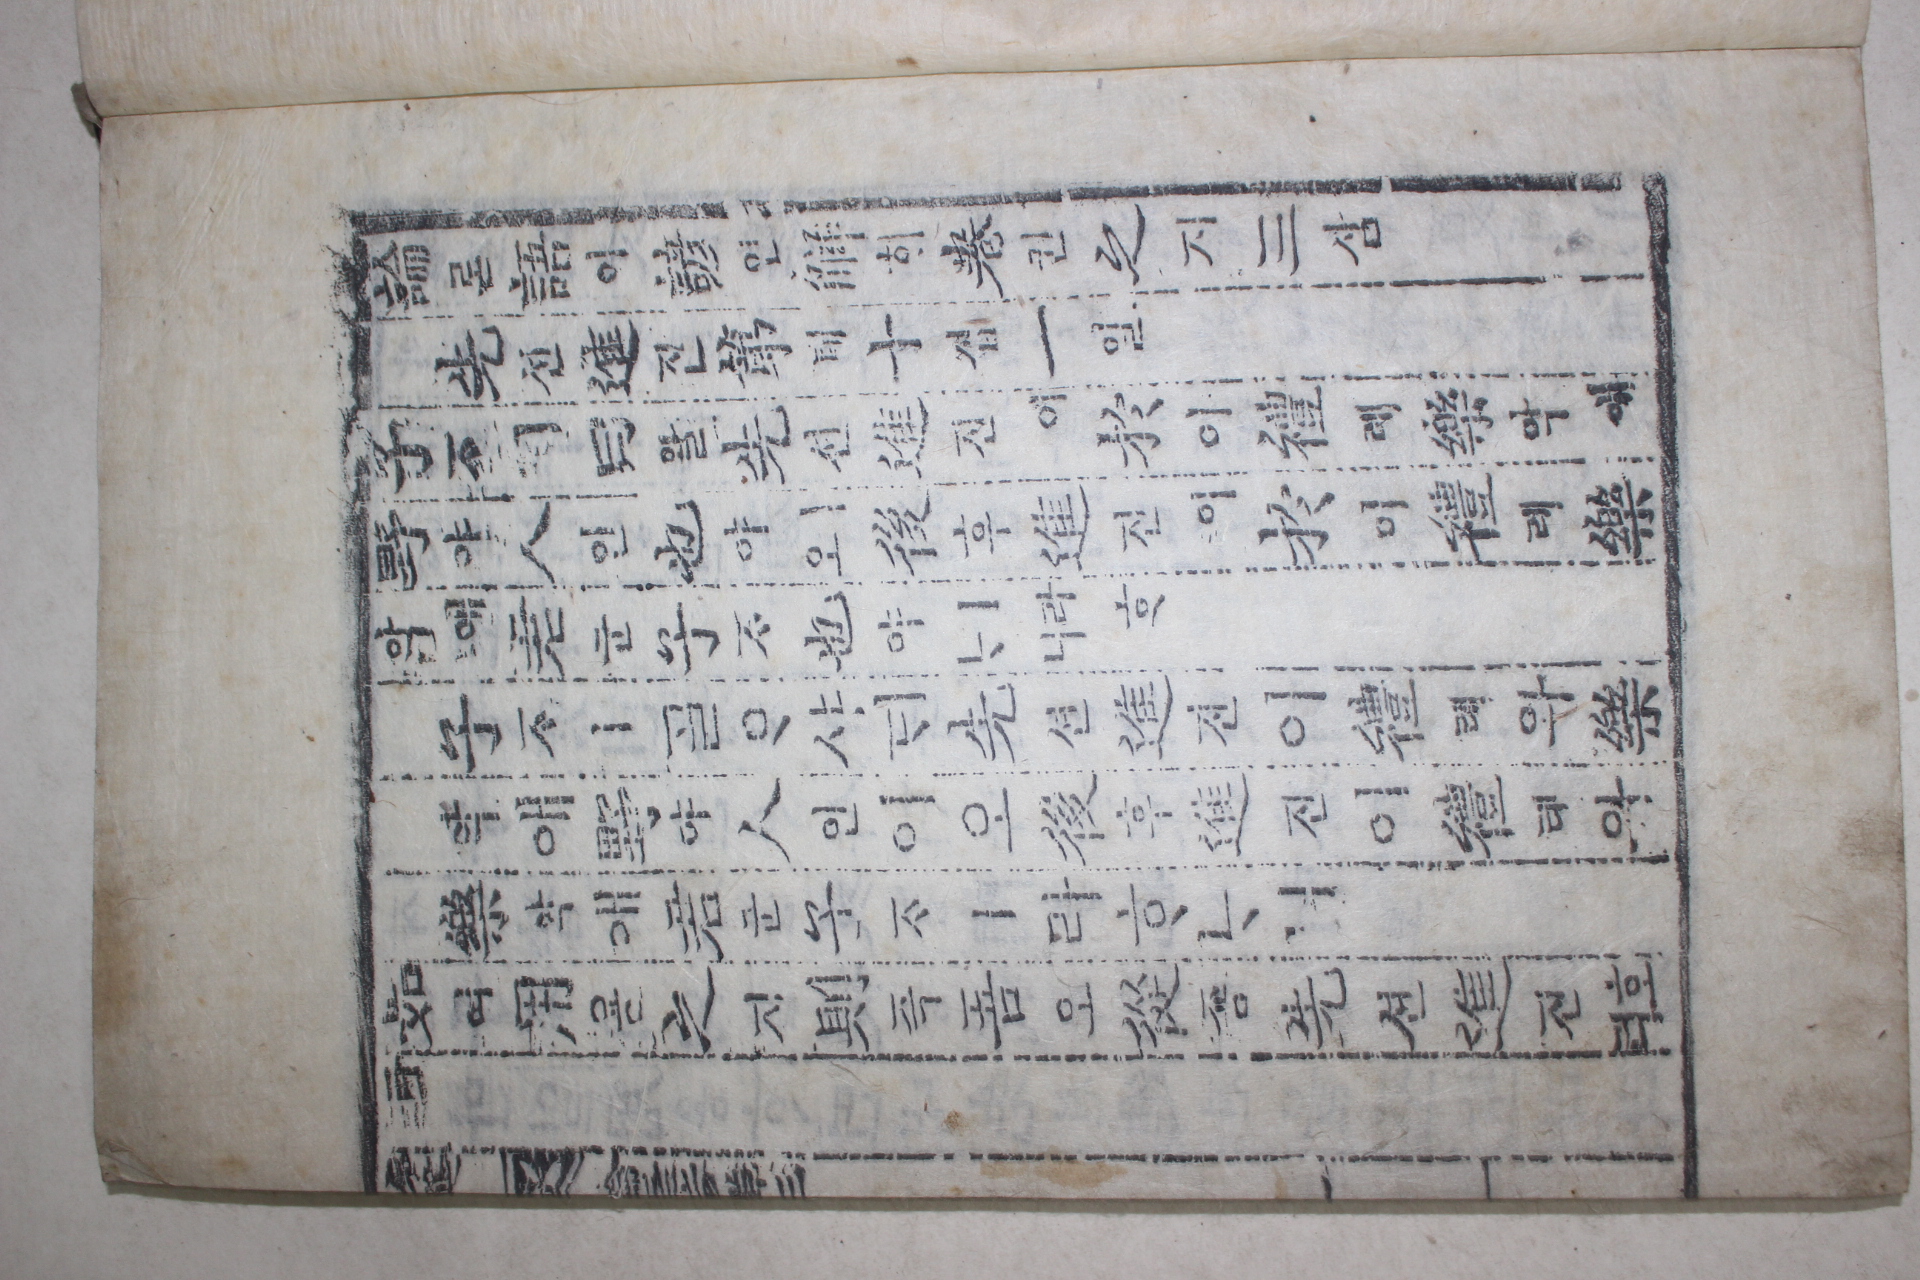 論론語어諺언解해卷권之지三삼
先션進진第뎨十십一일
子ᄌᆞ曰왈先션進진이於어禮례樂악애
野야人인也야ㅣ오後후進진이於어禮례樂
악애君군子ᄌᆞ也야ㅣ라ᄒᆞᄂᆞ니
子ᄌᆞㅣᄀᆞᆯᄋᆞ샤ᄃᆡ先션進진이禮례와樂
악애野야人인이오後후進진이禮례와
樂악애君군子ᄌᆞㅣ라ᄒᆞᄂᆞ니
如여用용之지則즉吾오從죵先션進진호